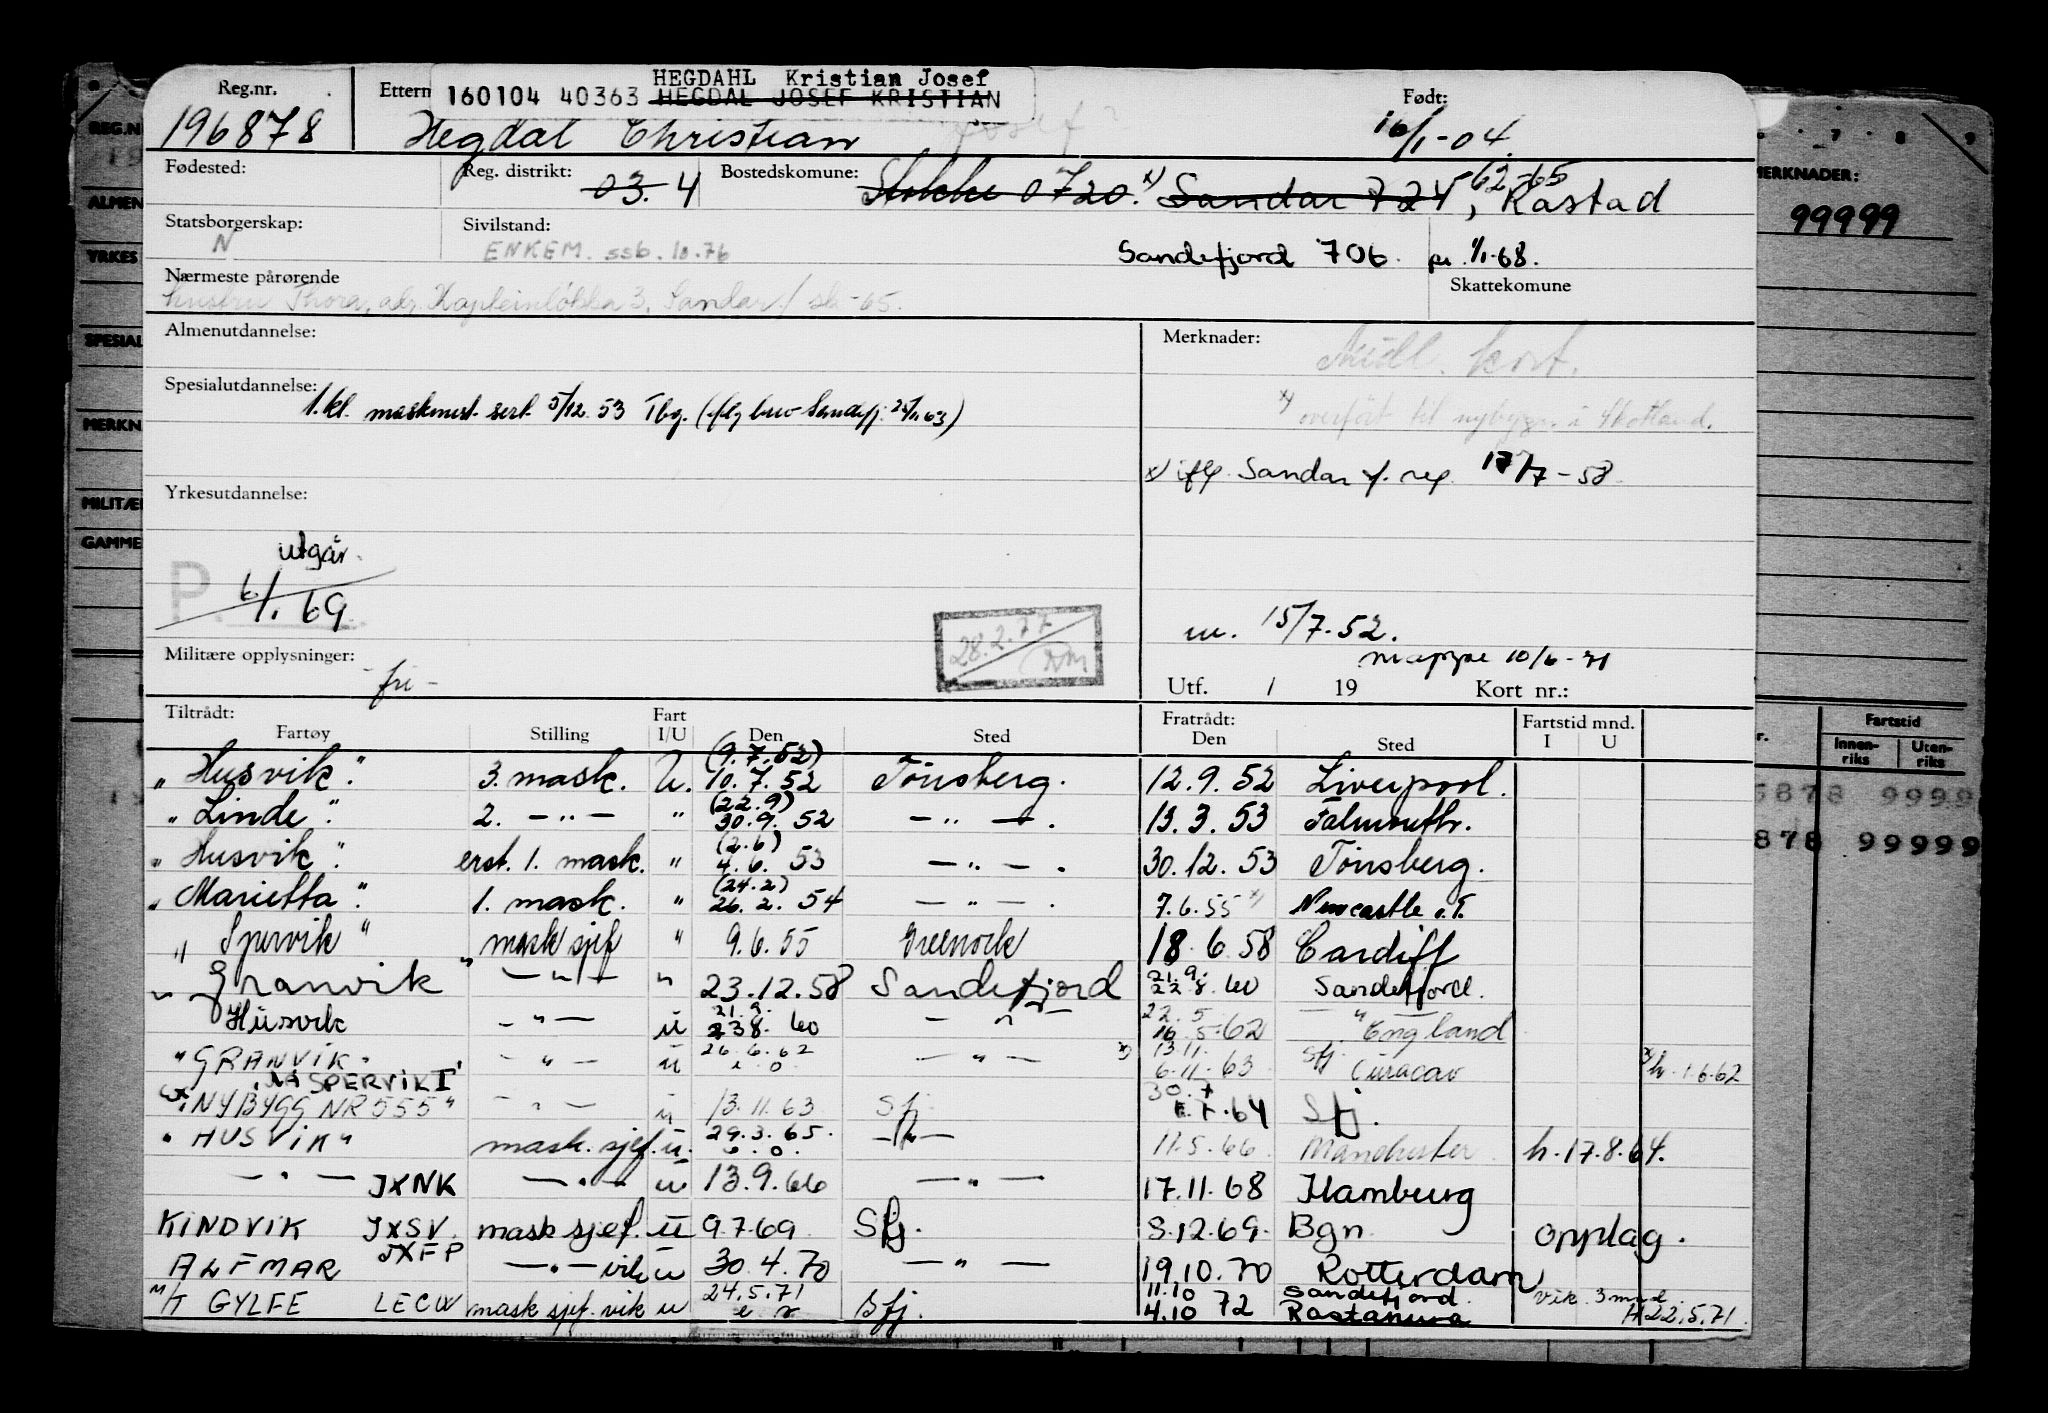 Reg.nr. Ettern HEGDAHL Kristian Josef Født:
160104 40363 HEGDAL JOSEF KRISTIAN
196878 Hegdal Christian Josef 16/1-04.
Fødested: Reg. distrikt: 03. 4 Bostedskommune: Stokke 0720. x) Sandar 724, 62-65 Råstad
Statsborgerskap: N Sivilstand: ENKEM. ssb. 10.76 Sandefjord 706. pr. 1/1-68.
Nærmeste pårørende Skattekomune
hustru Thora, adr. Kapteinløkka 3, Sandar / sk-65.
Almenutdannelse: Merknader:
Midl. kort.
Spesialutdannelse: 1. kl. maskinist. sert. 5/12. 53 Tbg. (iflg brev Sandefj. 63)
x) overført til nybygn. i Skotland.
x) iflg. Sandar f. reg. 17/7-58.
Yrkesutdannelse:
utgår.
P. 6/1. 69
28.2.77
m. 15/7.52.
mappe 10/6-71
Militære opplysninger: -fri-
Utf. / 19 Kort nr.:
Tiltrådt: Fart Fratrådt: Fartstid mnd.
Fartøy Stilling I/U Den Sted Den Sted I U
"Husvik". 3. mask. U. (9.7.52) 10.7.52 Tønsberg. 12.9.52 Liverpool.
"Linde". 2. -"- " (22.9) 30.9.52 -"-. 13.3.53 Falmouth.
"Husvik". erst. 1. mask. " (2.6) 4.6.53 -"-. 30.12.53 Tønsberg.
"Marietta". 1. mask. " (24.2) 26.2.54 -"-. 7.6.55 x) Newcastle o.T.
"Spervik" mask sjef " 9.6.55 Greenock 18.6.58 Cardiff
"Granvik" -"- " 23.12.58 Sandefjord 21.9. 22.8.60 Sandefjord.
Husvik -"- u 21.9. 23.8.60 -"- 22.5 16.5.62 -"- England
"GRANVIK" -"- u 26.6.62 e.o. -"- x) 13.11. 6.11.63 Sfj. Curacao x) h. 1.6.62
NÅ SPERVIK I
"NYBYGG NR 555" -"- u 13.11.63 Sfj. 30.7 1.7.64 Sfj.
"HUSVIK" mask. sjef. u. 29.3.65. e.o. -"- 11.5.66 Manchester h. 17.8.64.
-"- JXNK -"- u 13.9.66 -"- 17.11.68 Hamburg
KINDVIK JXSV. mask sjef. u 9.7.69. Sfj. 8.12.69. Bgn. opplag.
ALFMAR JXFP -"- vik u 30.4.70 -"- 19.10.70 Rotterdam
M/T GYLFE LECW mask sjef. vik u 24.5.71 Sfj. 11.10 4.10 72 Sandefjord. Rastanura vik. 3 mnd. H22.5.71.
REG.N
ALMEN
YRKES
SPESIAL
MERKN
MILITÆ
GAMME
7 8 9
MERKNADER:
99999
Fartstid
Innen-riks Uten-riks
5878 9999
878 99999